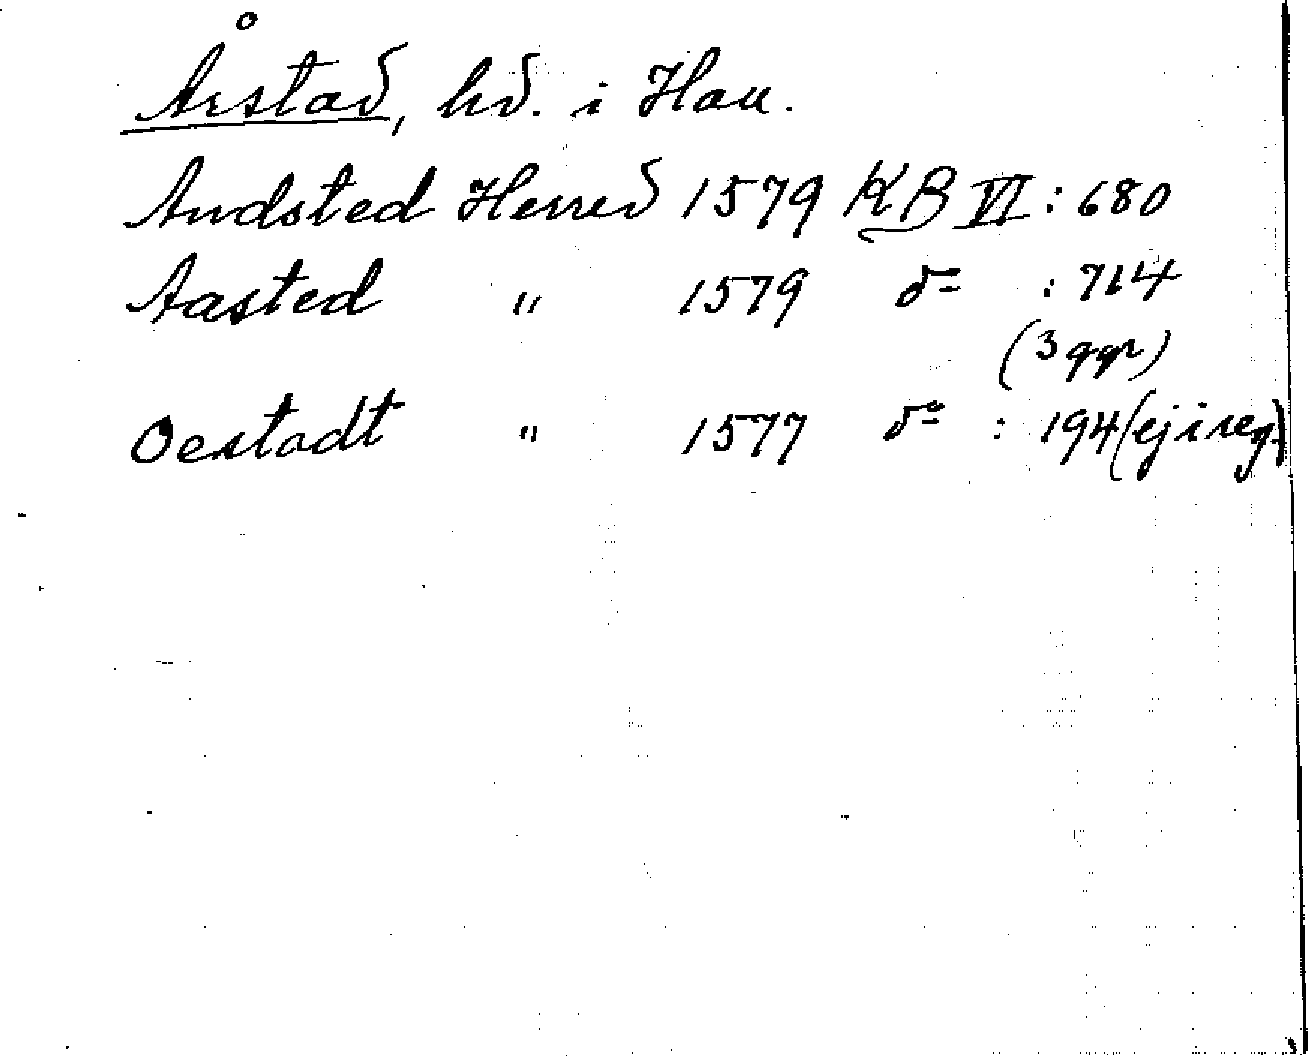 Årstad, hd. i Hall.
Audsted Herred 1579 KB VI : 680
Aasted " 1579 do : 714
(3 ggr)
Oestadt " 1577 do : 194 (ej i reg.)